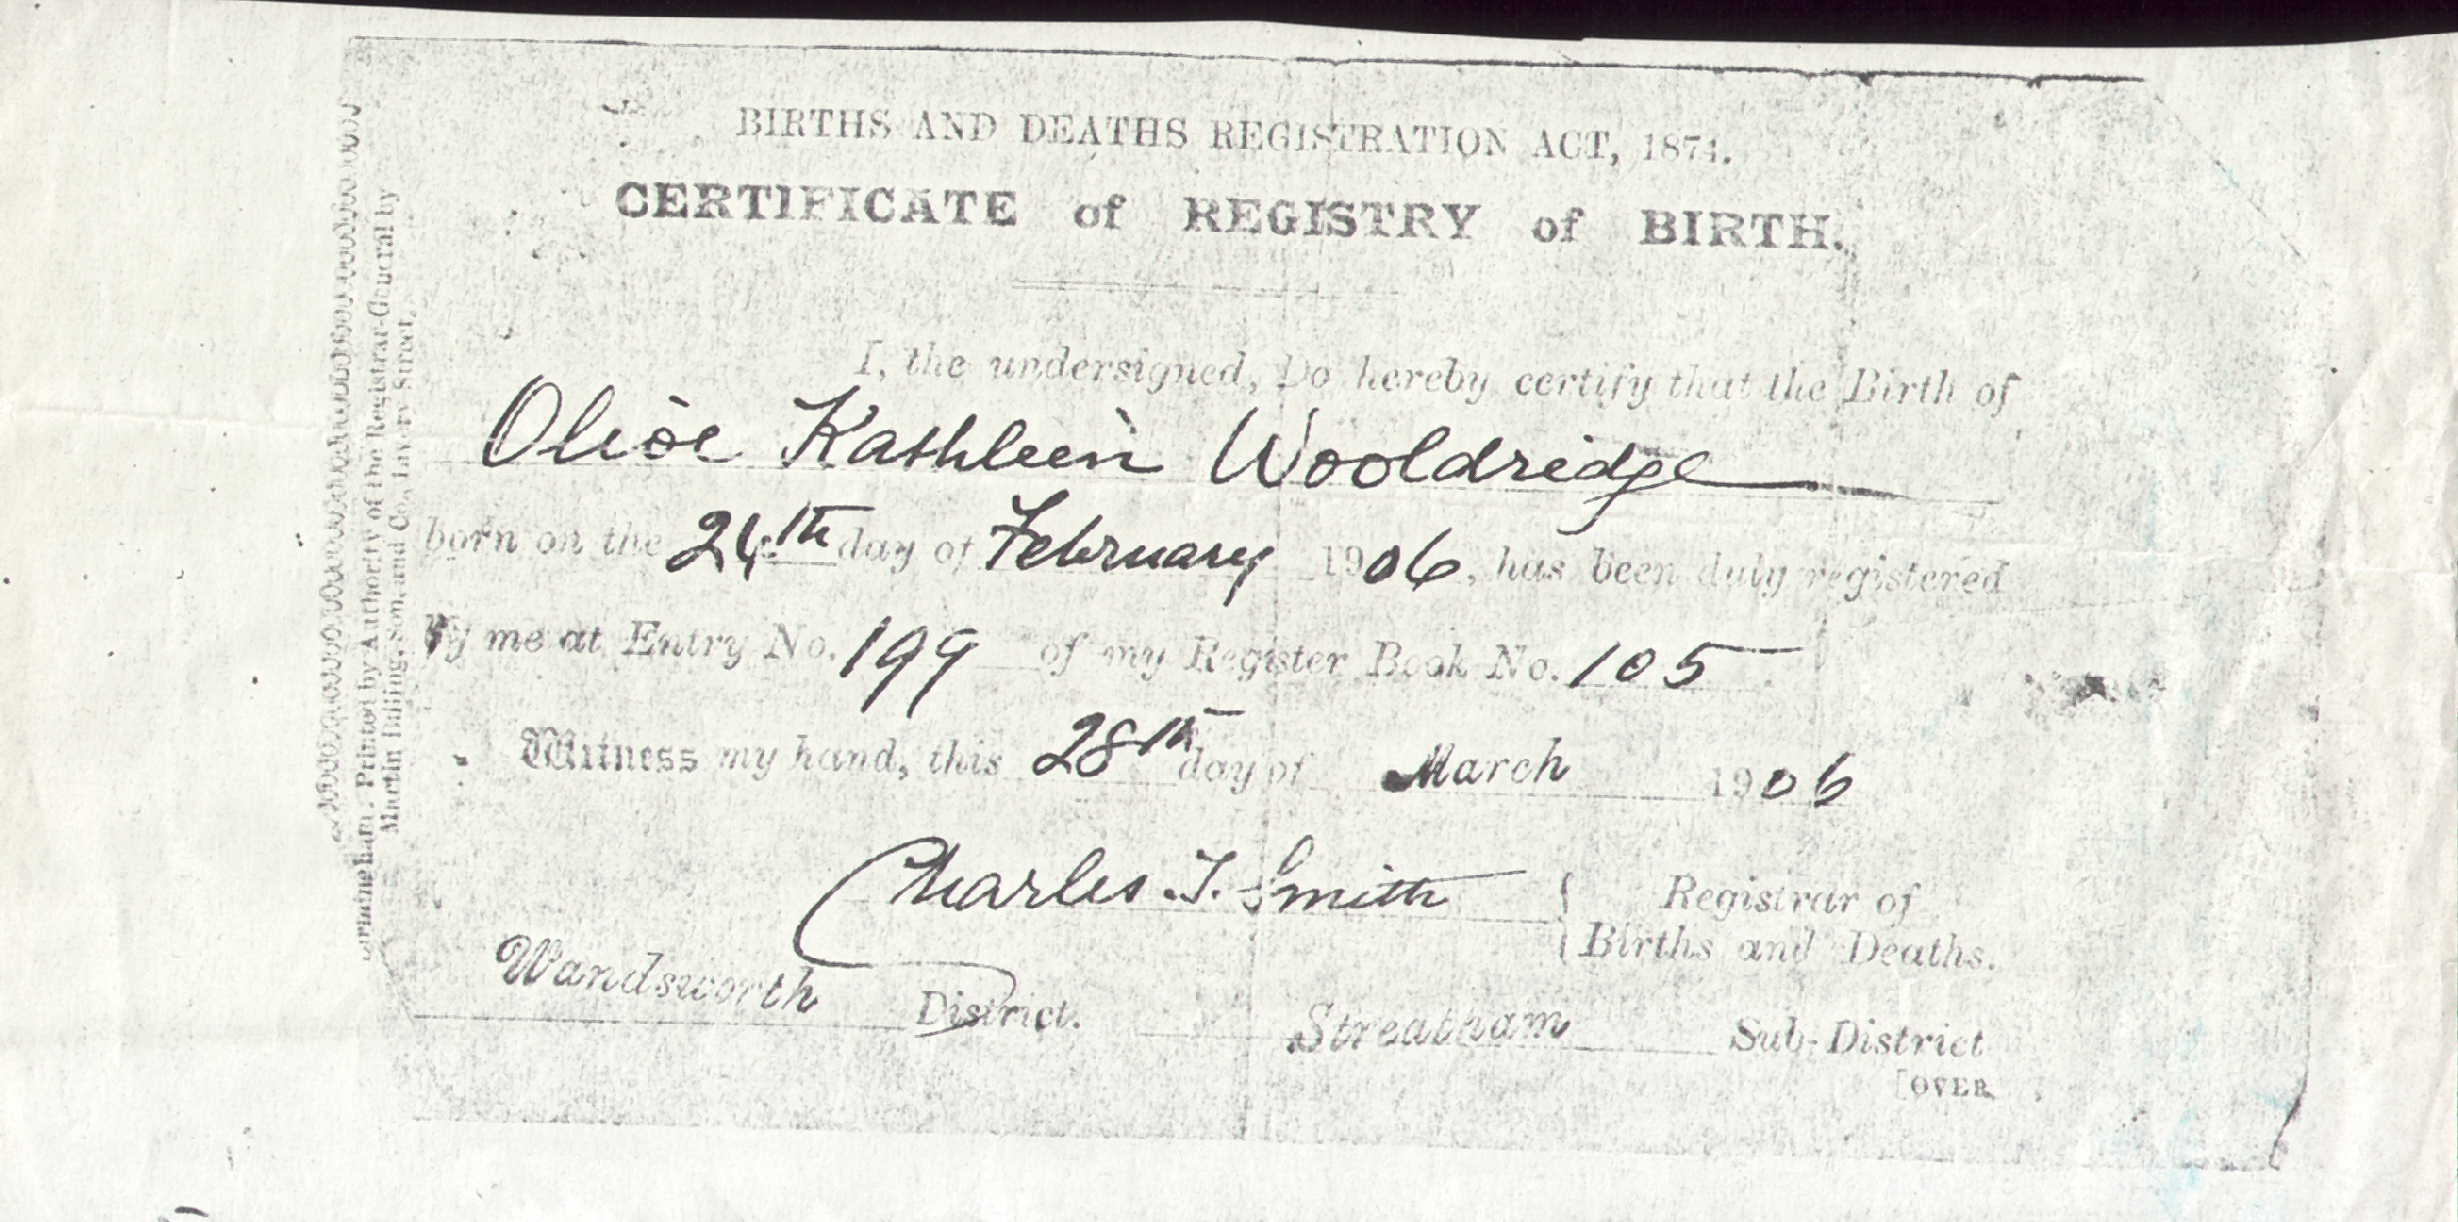 BIRTHS AND DEATHS REGISTRATION ACT, 1874.
CERTIFICATE of REGISTRY of BIRTH.
I, the undersigned, Do hereby certify that the Birth of
Olive Kathleen Wooldridge
born on the 24th day of February 1906, has been duly registered
by me at Entry No. 199 of my Register Book No. 105
Witness my hand, this 28th day of March 1906
Charles J. Smith { Registrar of
Births and Deaths.
Wandsworth District. Streatham Sub-District
[OVER
Printed by Authority of the Registrar-General by
Martin Billing, Son, and Co., Livery Street,